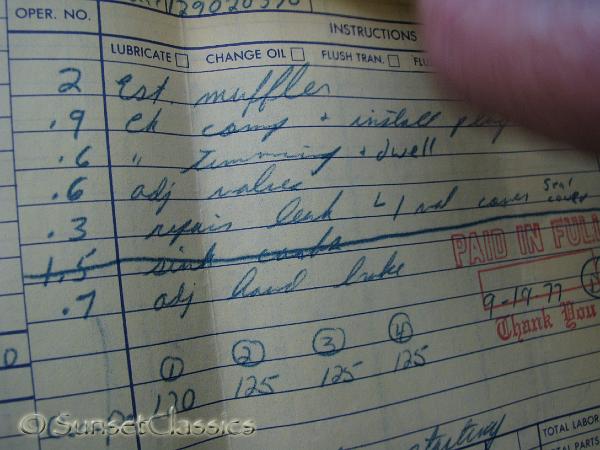 OPER. NO.
INSTRUCTIONS
LUBRICATE CHANGE OIL FLUSH TRAN.
2 Est. muffler
.9 Ck comp + install plug
.6 " Timming + dwell
.6 adj valves
.3 repair leak L/ val cover Seal cover
1.5 sink carbs
.7 adj hand brake
PAID IN FULL
9-19-77
Thank You
1 2 3 4
120 125 125 125
starting
TOTAL LABOR
PARTS
© SunsetClassics